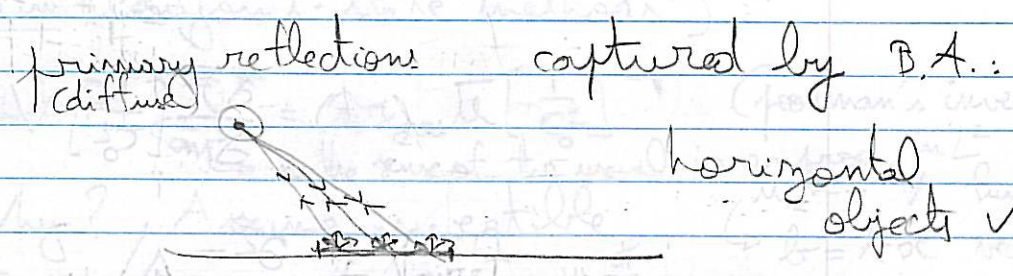 primary reflections captured by B.A.:
(diffuse)
horizontal
objects ✓